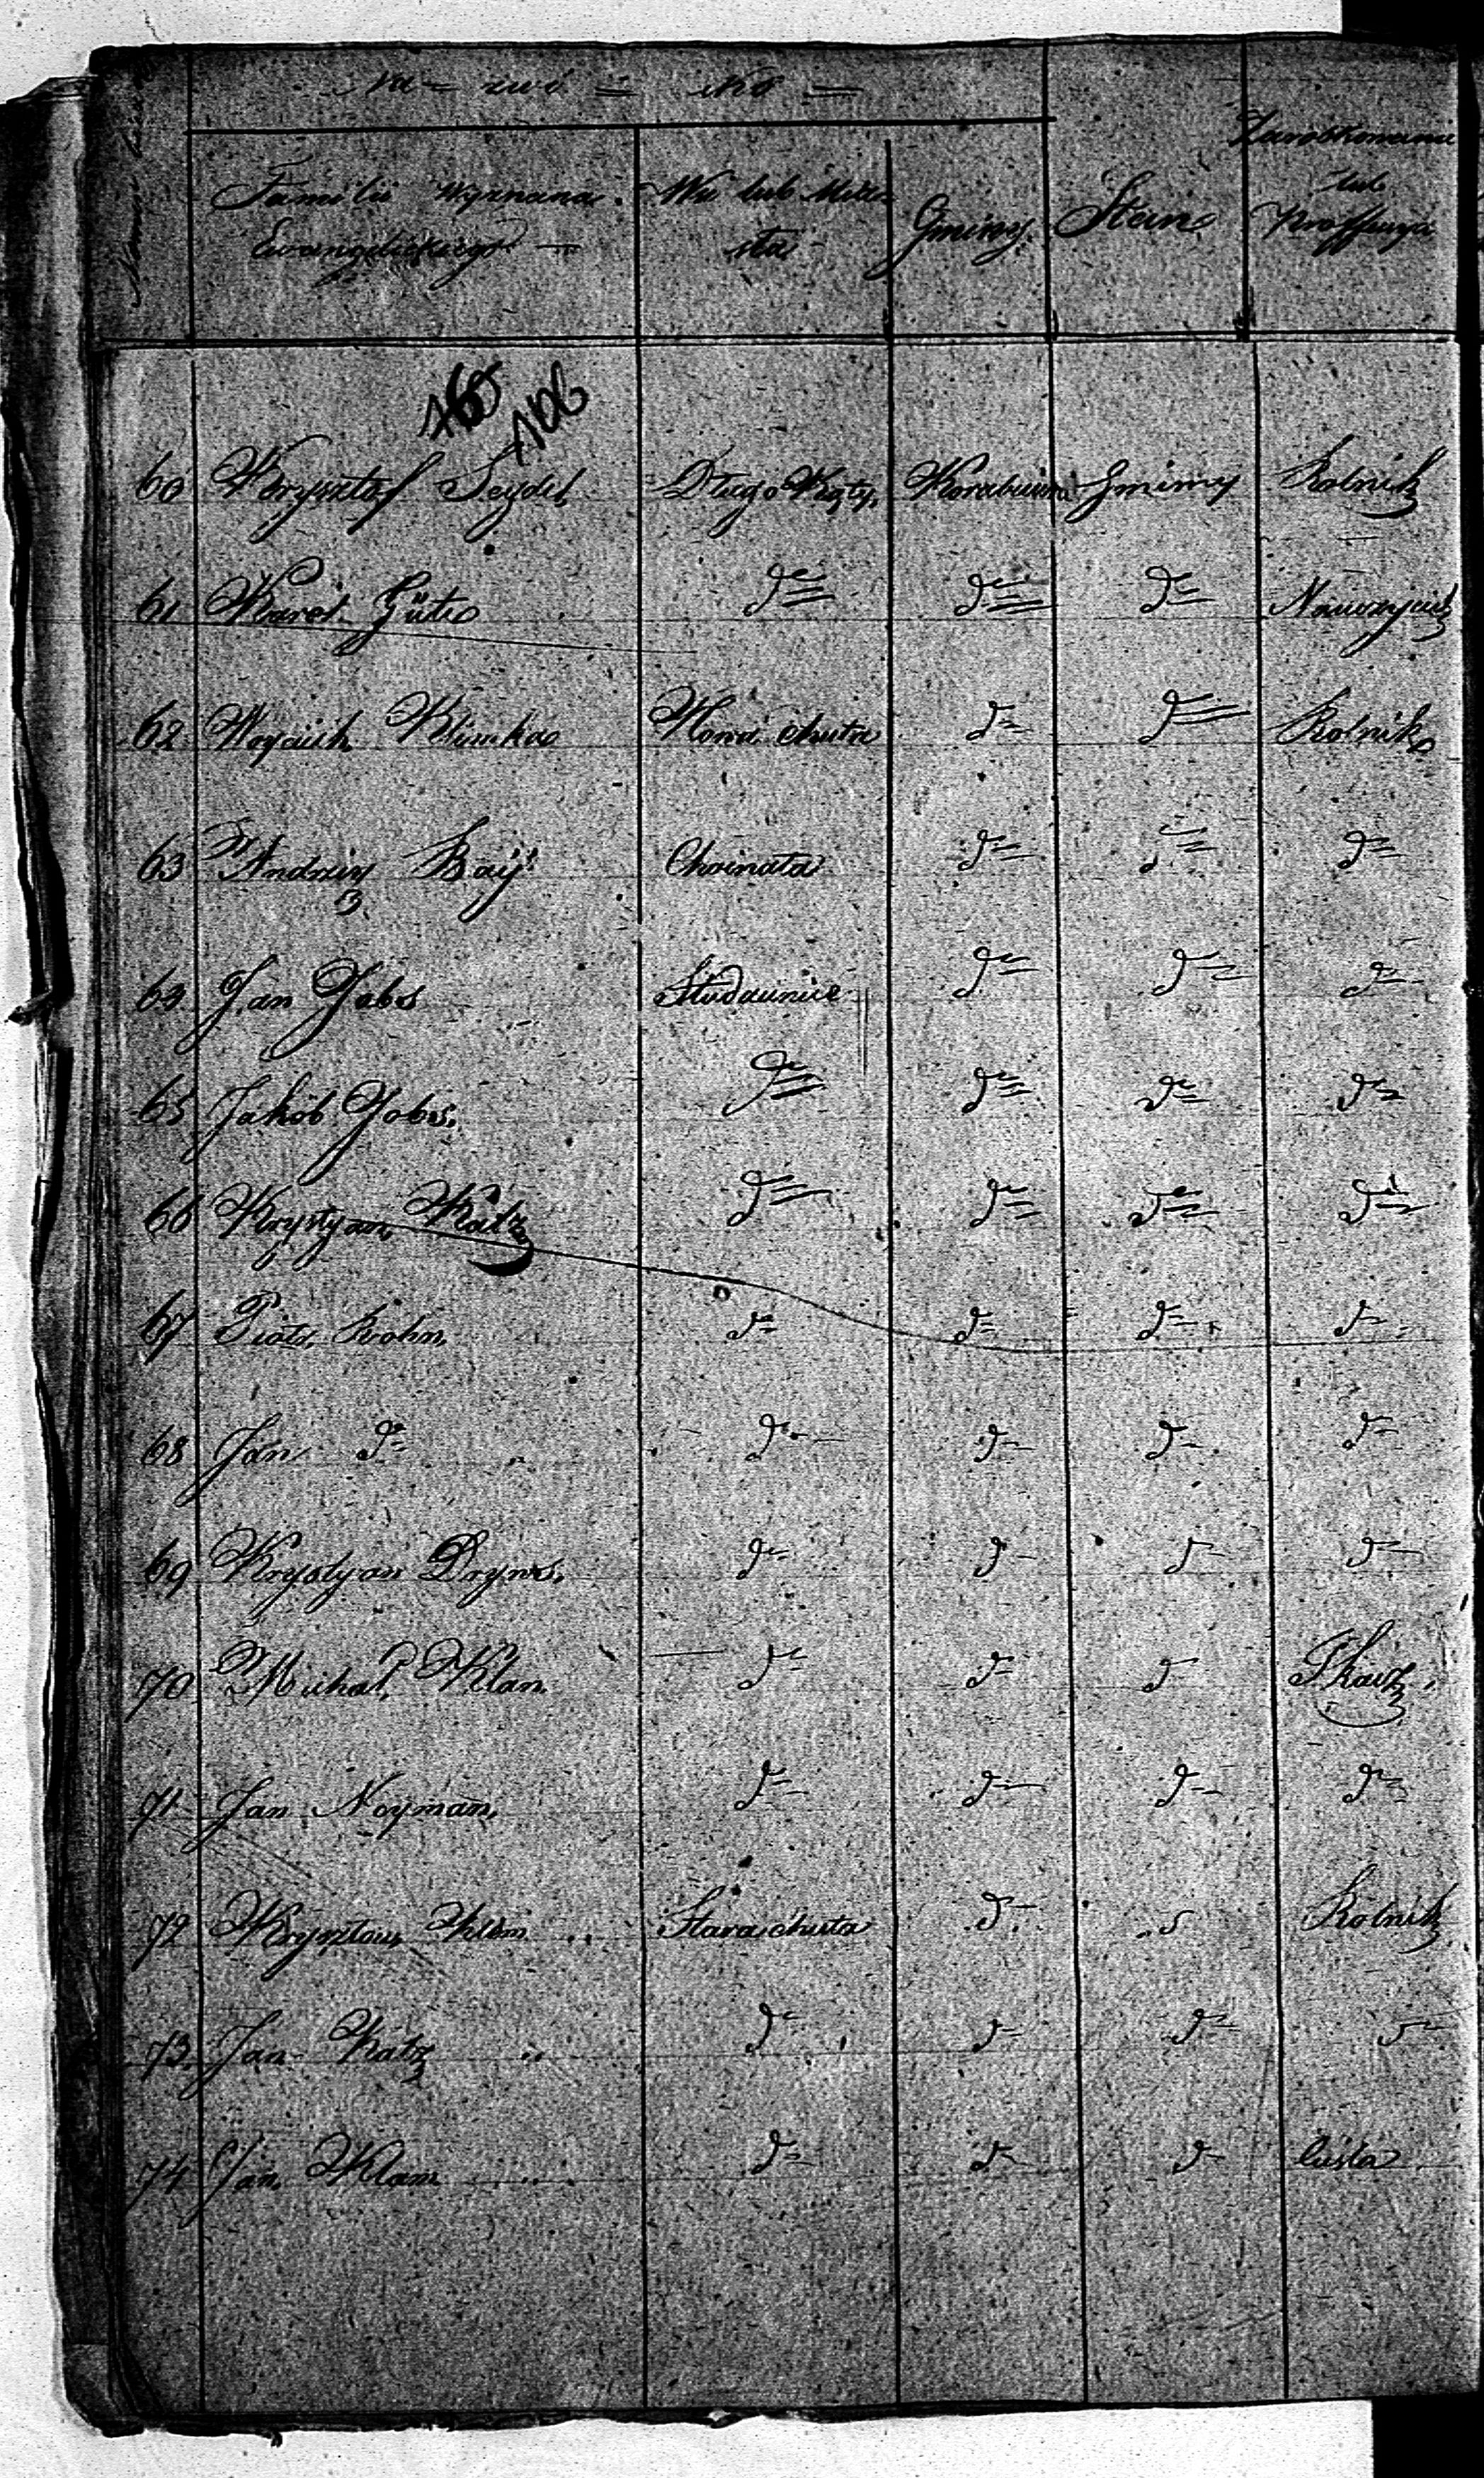 Na = zwi = sko =
Familii Wyznania Ewangelickiego — Wsi lub Miasta Gminy Stan Zarobkowania lub Proffessya
106
60 Krysztof Seydel Długo Kąty Korabiewice Gminny Rolnik
61 Karol Güte d° d° d° Nauczyciel
62 Woyciech Klimka Nowa chuta d° d° Rolnik
63 Andrzey Bay Choinata d° d° d°
64 Jan Jabs Studzienice d° d° d°
65 Jakób Jobs d° d° d° d°
66 Krystyan Katz d° d° d° d°
67 Piotr Krohn d° d° d° d°
68 Jan d° d° d° d° d°
69 Krystyan Dryws d° d° d° d°
70 Michał Klan d° d° d° Tkacz
71 Jan Noyman d° d° d° d°
72 Kryszton Klem Stara chuta d° d° Rolnik
73 Jan Katz d° d° d° d°
74 Jan Klam d° d° d° Cieśla